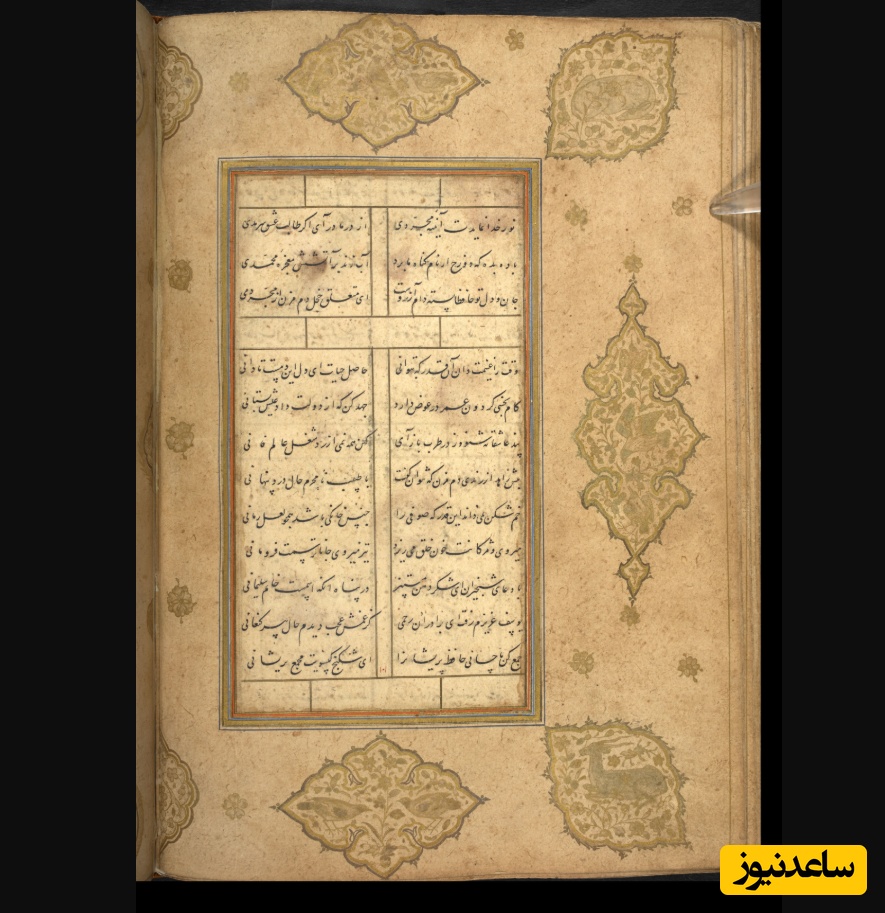 نور خدا نمایدت آینه مجردی
از در ما درآی اگر طالب عشق سرمدی
باده بده که دوزخ ار نام گناه ما برد
آب زند بر آتشش معجزه محمدی
جان و دل تو حافظا بسته دام آرزوست
ای متعلق خجل دم مزن از مجردی
وقت را غنیمت دان آن قدر که بتوانی
حاصل حیات ای دل این دم است تا دانی
کام بخشی گردون عمر در عوض دارد
جهد کن که از دولت داد عیش بستانی
پند عاشقان بشنو وز در طرب بازآی
کاین همه نمی‌ارزد شغل عالم فانی
پیش زاهد از رندی دم مزن که نتوان گفت
با طبیب نامحرم حال درد پنهانی
خم شکن نمی‌داند این قدر که صوفی را
جنس خانگی باشد همچو لعل رمانی
می‌روی و مژگانت خون خلق می‌ریزد
تیز می‌روی جانا ترسمت فرومانی
با دعای شبخیزان ای شکردهن مستیز
در پناه آنکه اسمیست خاتم سلیمانی
یوسف عزیزم رفت ای برادران رحمی
کز غمش عجب دیدم حال پیر کنعانی
جمع کن باحسانی حافظ پریشان را
ای شکنج گیسویت مجمع پریشانی
ساعدنیوز